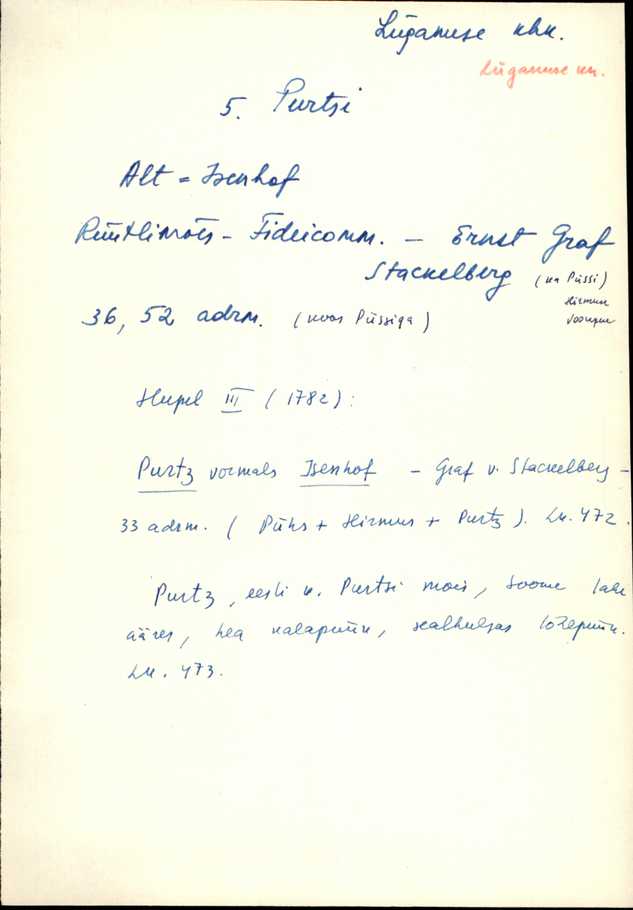 Lüganuse khk.
Lüganuse kn.
5. Purtsi
Alt-Isenhof
Rüütlimõis - Fideicomm. - Ernst Graf
Stackelberg (ka Püssi)
Hirmuse
36,52 adrm. (koos Püssiga)
Hupel III (1782):
Purtz vormals Isenhof - Graf v. Stackelberg -
33 adrm. (Pühs + Hirmus + Purtz). Lk. 472.
Purtz, eesti k. Purtsi mois, Soome lahe
ääres, hea kalapüük, sealhulgas lõhepüük.
Lk. 473.